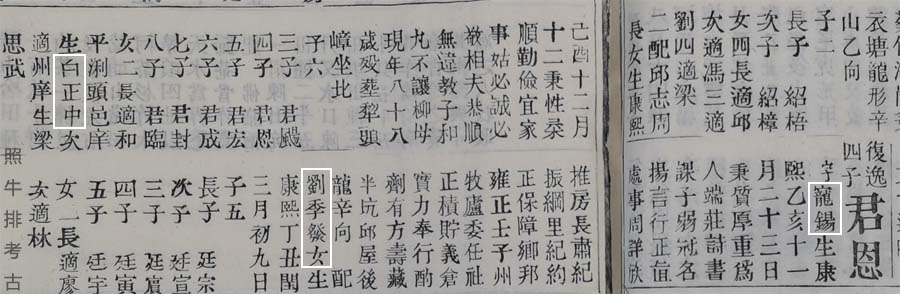 衣塘龍形辛
山乙向
子二
長子 紹梧
次子 紹樟
女四長適邱
次適馮三適
劉四適梁
二配邱志周
長女生康熙
復逸四子 君恩
字寵錫生康
熙乙亥十一
月二十三日
秉質厚重爲
人端莊詩書
課子弱冠各
揚言行正直
處事周詳欣
己酉十二月
十二秉性柔
順勤儉宜家
事姑必誠必
敬相夫恭順
無違教子和
丸不讓柳母
現年八十八
歲歿葬犂頭
嶂坐北
子六
三子 君颺
四子 君恩
五子 君宏
六子 君成
七子 君封
八子 君臨
女二長適和
平浰頭邑庠
生白正中次
適州庠生梁
思武
推房長肅紀
振綱里紀約
正保障鄉邦
雍正壬子州
牧盧委任社
正積貯義倉
實力奉行酌
劑有方壽藏
半坑邱屋後
龍辛向 配
劉季發女生
康熙丁丑閏
三月初九日
子五
長子 廷宗
次子 廷宣
三子 廷賓
四子 廷寅
五子 廷宇
女一長適廖
次適林
照牛排考古